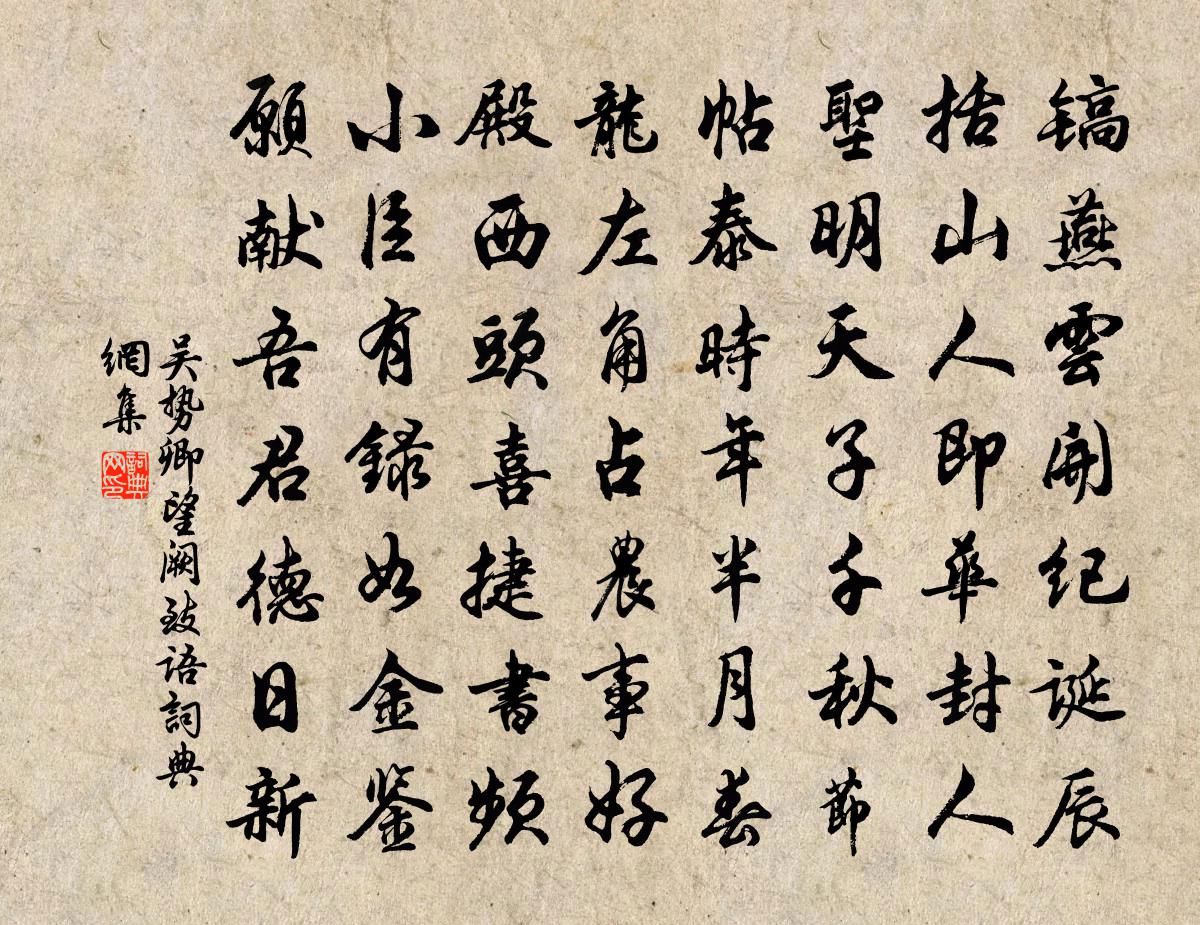 镐燕雲開纪诞辰
括山人即華封人
聖明天子千秋節
帖泰時年半月春
龍左角占農事好
殿西頭喜捷書頻
小臣有錄如金鉴
願献吾君德日新
吴势卿望阙致语詞典
網集
詞典网印